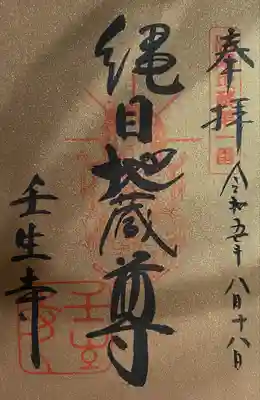 奉拝
令和五年 八月十八日
縄目地蔵尊
壬生寺